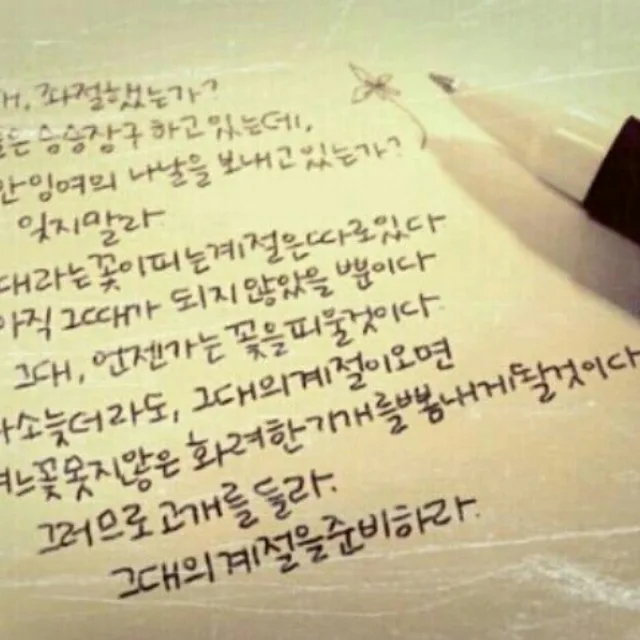 좌절했는가?
승승장구 하고 있는데,
잉여의 나날을 보내고 있는가?
잊지말라
대라는 꽃이 피는 계절은 따로 있다
아직 그때가 되지 않았을 뿐이다
그대, 언젠가는 꽃을 피울것이다.
소늦더라도, 그대의 계절이 오면
느꽃 못지않은 화려한 기개를 뽐내게 될것이다
그러므로 고개를 들라.
그대의 계절을 준비하라.